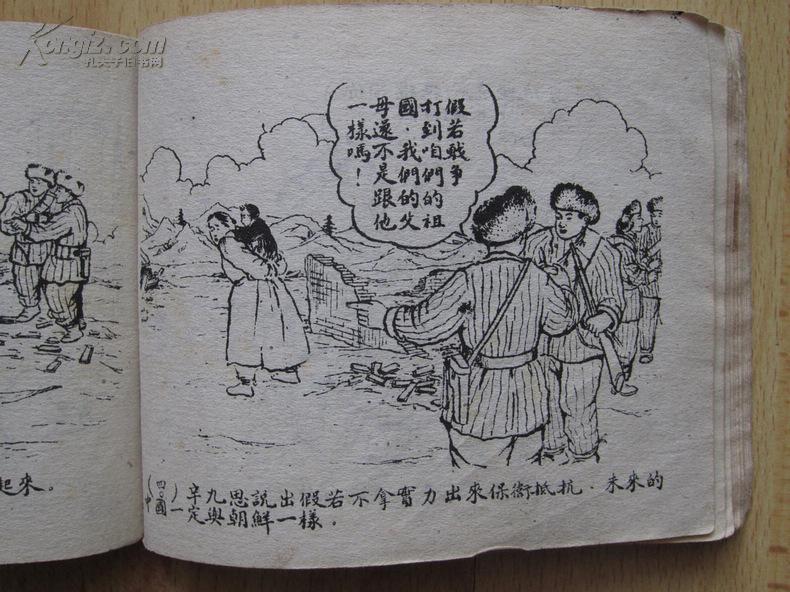 Kongfz.com
孔夫子旧书网
起來。
假若戰争
打到咱們的祖
國．我們的父
母還不是跟他
一樣嗎！
（四〇）辛九思説出假若不拿實力出來保衛抵抗．未來的
中國一定與朝鮮一樣．